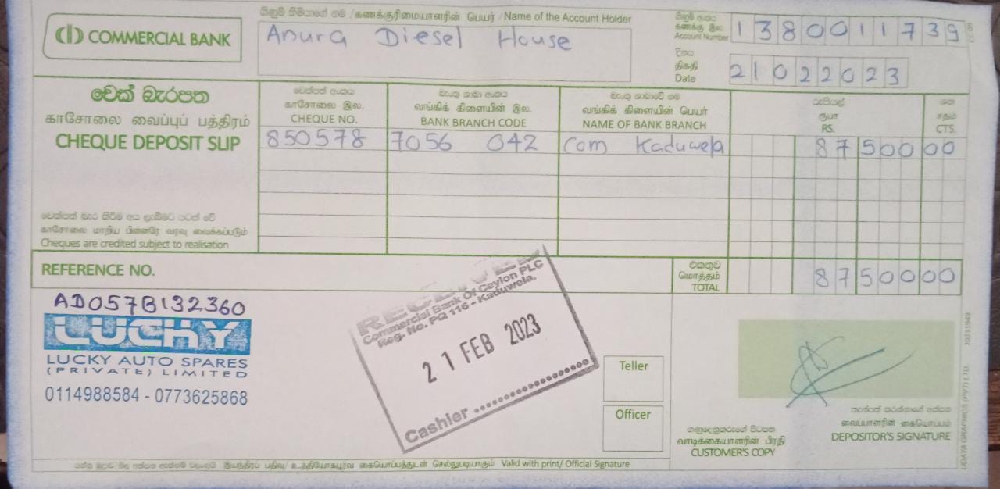 ගිණුම් හිමියාගේ නම / கணக்குரிமையாளரின் பெயர் / Name of the Account Holder
COMMERCIAL BANK
Anura Diesel House
ගිණුම් අංකය
கணக்கு இல.
Account Number
1380011739
දිනය
திகதி
Date
21022023
චෙක් බැරපත
காசோலை வைப்புப் பத்திரம்
CHEQUE DEPOSIT SLIP
චෙක්පත් අංකය
காசோலை இல.
CHEQUE NO.
බැංකු ශාඛා අංකය
வங்கிக் கிளையின் இல.
BANK BRANCH CODE
බැංකු ශාඛාවේ නම
வங்கிக் கிளையின் பெயர்
NAME OF BANK BRANCH
රුපියල්
ரூபா
RS.
ශත
சதம்
CTS.
850578 7056 042 Com Kaduwela 87500 00
காசோலை மாறிய பின்னரே வரவு வைக்கப்படும்
Cheques are credited subject to realisation
REFERENCE NO.
එකතුව
மொத்தம்
TOTAL
87500 00
AD057B132360
LUCKY
LUCKY AUTO SPARES
(PRIVATE) LIMITED
0114988584 - 0773625868
RECEIVED
Commercial Bank Of Ceylon PLC
Reg. No. PQ 116 - Kaduwela.
21 FEB 2023
Cashier
Teller
Officer
ගනුදෙනුකරුගේ පිටපත
வாடிக்கையாளரின் பிரதி
CUSTOMER'S COPY
வைப்பாளரின் கையொப்பம்
DEPOSITOR'S SIGNATURE
Valid with print/ Official Signature